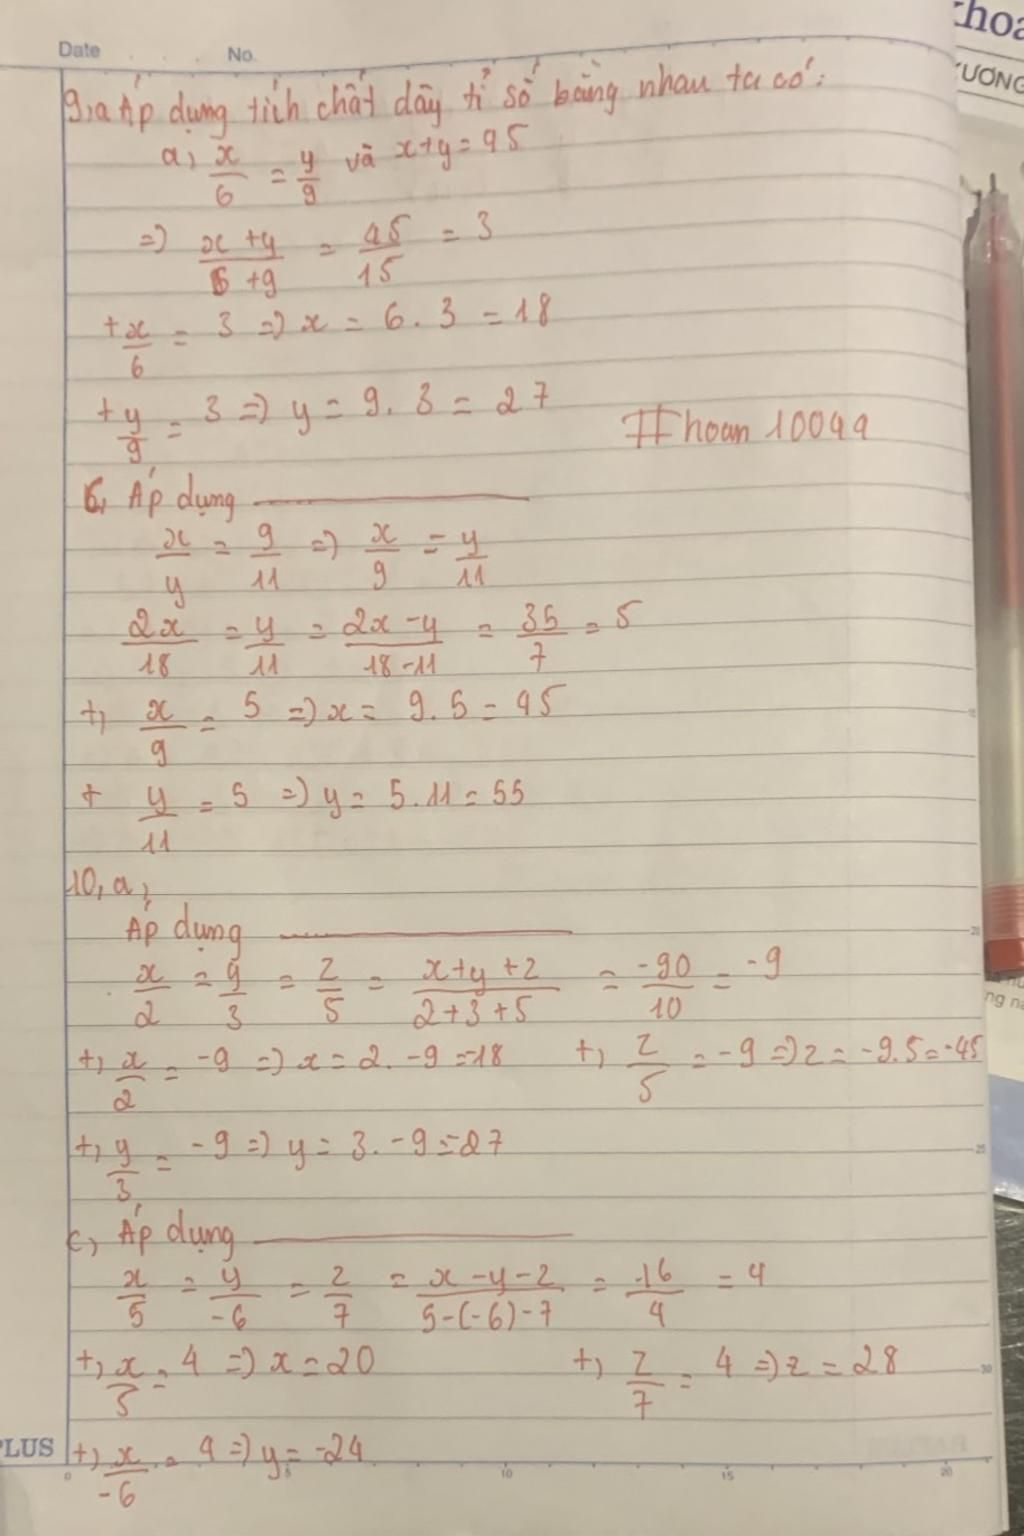 Date No.
khoa
ƯƠNG
9,a Áp dụng tích chất dãy tỉ số bằng nhau ta có:
a, x/6 = y/9 và x+y=45
=> (x+y)/(6+9) = 45/15 = 3
+ x/6 = 3 => x = 6.3 = 18
+ y/9 = 3 => y = 9.3 = 27
#hoan10044
6, Áp dụng
x/y = 9/11 => x/9 = y/11
2x/18 = y/11 = (2x-y)/(18-11) = 35/7 = 5
+, x/9 = 5 => x = 9.5 = 45
+ y/11 = 5 => y = 5.11 = 55
10, a,
Áp dụng
x/2 = y/3 = z/5 = (x+y+z)/(2+3+5) = -90/10 = -9
+, x/2 = -9 => x = 2.-9 = -18 +, z/5 = -9 => z = -9.5 = -45
+, y/3 = -9 => y = 3.-9 = -27
c, Áp dụng
x/5 = y/-6 = z/7 = (x-y-z)/(5-(-6)-7) = 16/4 = 4
+, x/5 = 4 => x = 20 +, z/7 = 4 => z = 28
+, x/-6 = 4 => y = -24
PLUS
0 5 10 15 20